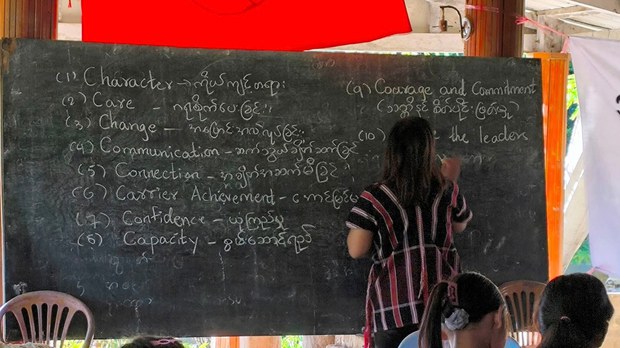 (1) Character → ကိုယ်ကျင့်တရား
(၂) Care - ဂရုစိုက်ပေးခြင်း။
(၃) Change - အပြောင်းအလဲလုပ်ခြင်း
(၄) Communication - ဆက်သွယ်ချိတ်ဆက်ခြင်း
(၅) Connection - အချိတ်အဆက်မိခြင်း
(၆) Carrier Achievement -
(၇) Confidence - ယုံကြည်မှု
(၈) Capacity - စွမ်းဆောင်ရည်
(၉) Courage and Commitment
(သတ္တိနှင့်
(10) the leaders